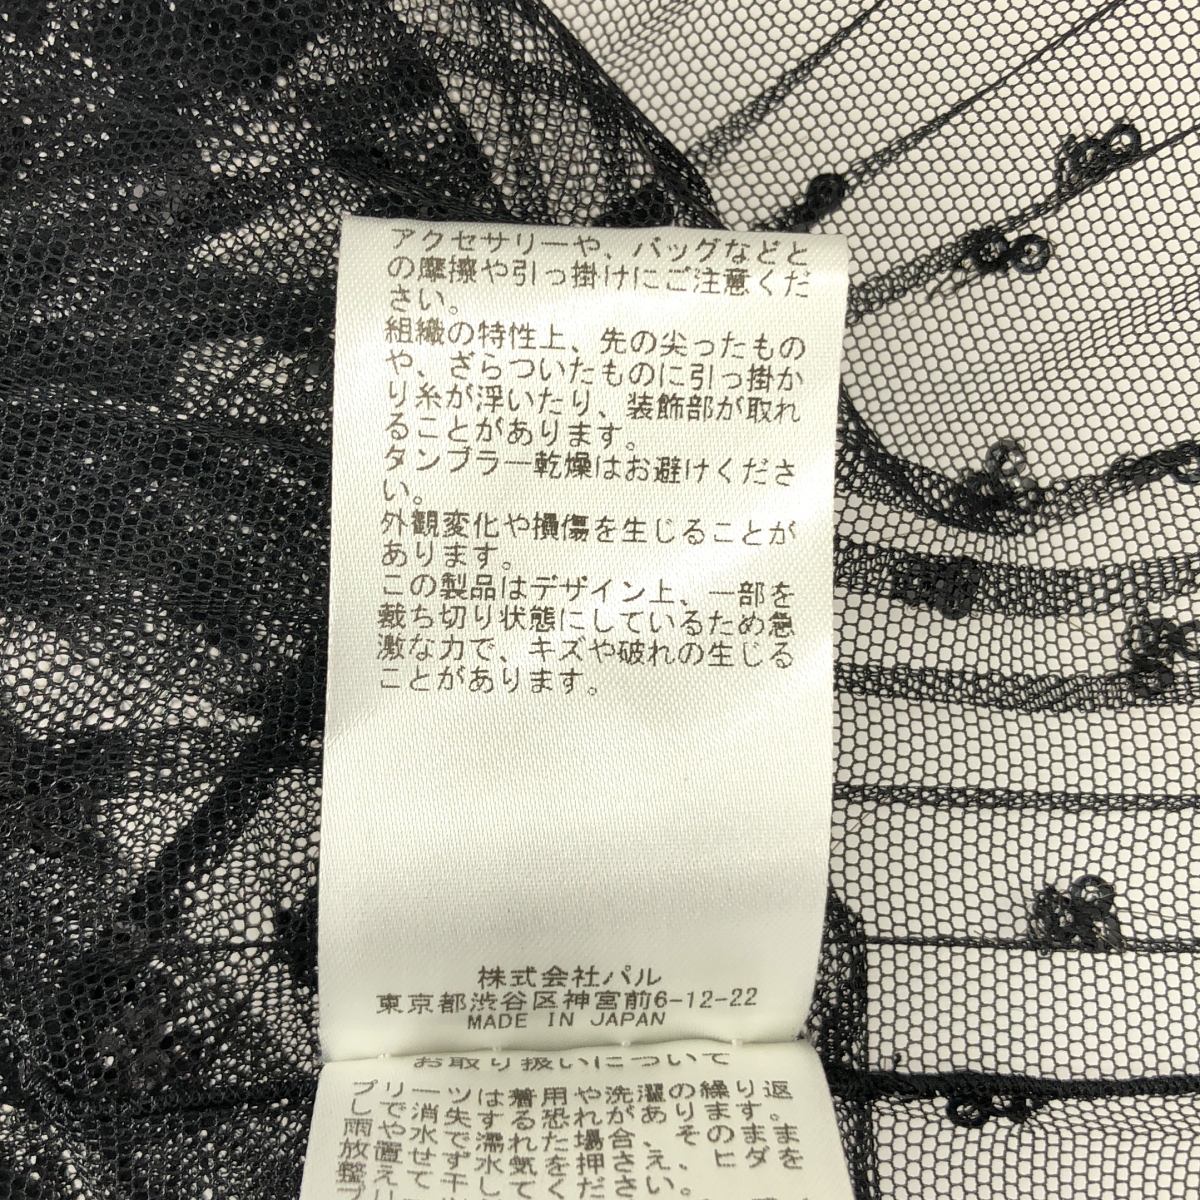 アクセサリーや、バッグなどと
の摩擦や引っ掛けにご注意くだ
さい。
組織の特性上、先の尖ったもの
や、ざらついたものに引っ掛か
り糸が浮いたり、装飾部が取れ
ることがあります。
タンブラー乾燥はお避けくださ
い。
外観変化や損傷を生じることが
あります。
この製品はデザイン上、一部を
裁ち切り状態にしているため急
激な力で、キズや破れの生じる
ことがあります。
株式会社パル
東京都渋谷区神宮前6-12-22
MADE IN JAPAN
お取り扱いについて
プリーツは着用や洗濯の繰り返
し で 消失する恐れがあります。